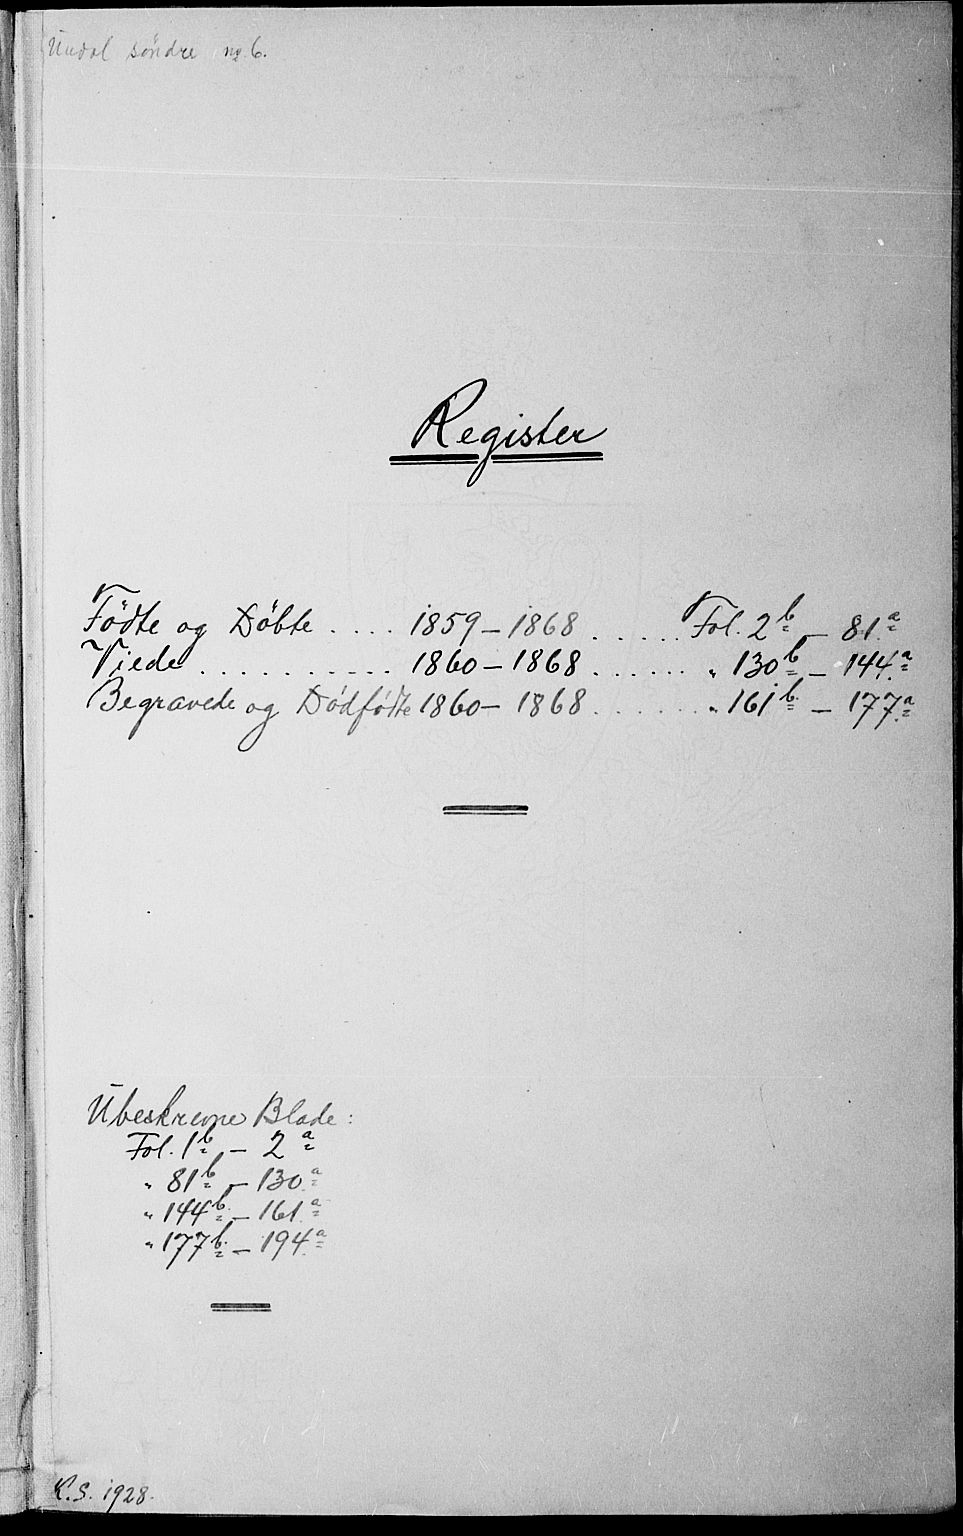 Undal söndre nr. 6.
Register
Födte og Döbte .... 1859 – 1868 ...... Fol. 2b – 81a
Viede .......... 1860 – 1868 ...... " 130b – 144a
Begravede og Dödfödte 1860 – 1868 ...... " 161b – 177a
Ubeskrevne Blade:
Fol. 1b – 2a
" 81b – 130a
" 144b – 161a
" 177b – 194a
K.S. 1928.